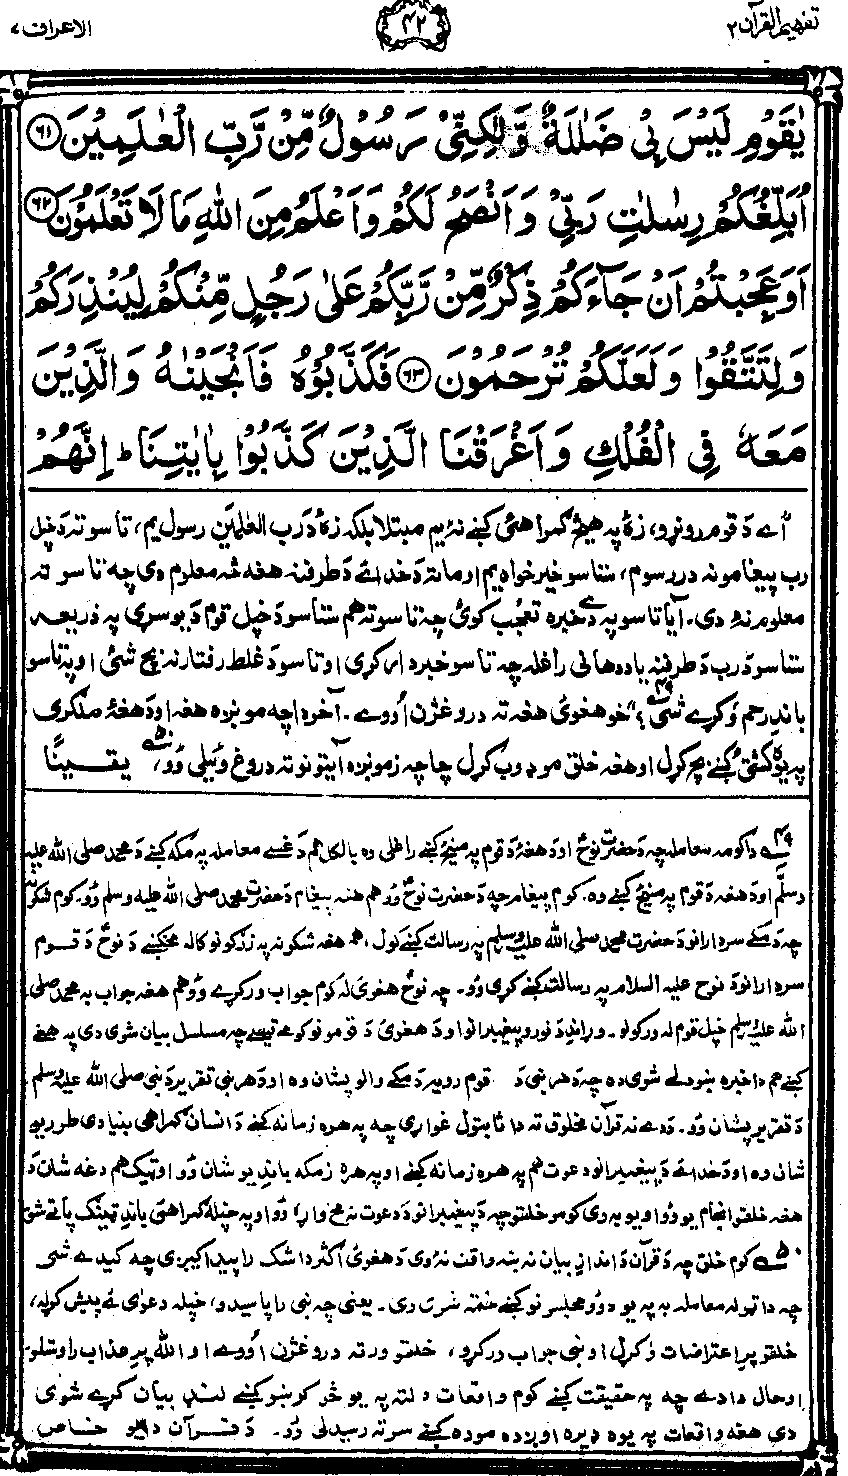 تفهیم القرآن ۲
۴۲
الاعراف ۷
يٰقَوْمِ لَيْسَ بِيْ ضَلٰلَةٌ وَّلٰكِنِّيْ رَسُوْلٌ مِّنْ رَّبِّ الْعٰلَمِيْنَ ﴿۶۱﴾
اُبَلِّغُكُمْ رِسٰلٰتِ رَبِّيْ وَاَنْصَحُ لَكُمْ وَاَعْلَمُ مِنَ اللّٰهِ مَا لَا تَعْلَمُوْنَ ﴿۶۲﴾
اَوَعَجِبْتُمْ اَنْ جَآءَكُمْ ذِكْرٌ مِّنْ رَّبِّكُمْ عَلٰى رَجُلٍ مِّنْكُمْ لِيُنْذِرَكُمْ
وَلِتَتَّقُوْا وَلَعَلَّكُمْ تُرْحَمُوْنَ ﴿۶۳﴾ فَكَذَّبُوْهُ فَاَنْجَيْنٰهُ وَالَّذِيْنَ
مَعَهٗ فِي الْفُلْكِ وَاَغْرَقْنَا الَّذِيْنَ كَذَّبُوْا بِاٰيٰتِنَا ؕ اِنَّهُمْ
اے دَ قوم رونړو، زۀ په هیڅ ګمراهئ کښے نۀ یم مبتلا بلکہ زۀ دَ رب العٰلمین رسول یم، تاسو ته دَ خپل
رب پیغامونه در رسوم، ستاسو خیر خواه یم او ماته دَ خدائے دَ طرفنه هغه څه معلوم دی چه تاسو ته
معلوم نۀ دی. آیا تاسو په دے خبره تعجب کوئ چه تاسو ته هم ستاسو دَ خپل قوم دَ یو سړی په ذریعه
ستاسو دَ رب دَ طرفنه یاددهانی راغله چه تاسو خبردار کړی او تاسو دَ غلط رفتار نه بچ شئ او په تاسو
باندِ رحم وُکړے شی؟ خو هغوئ هغه ته دروغژن اُووے. آخر دا چه مونږه هغه او دَ هغۀ ملګری
په یوه کشتئ کښے بچ کړل او هغه خلق مو ډوب کړل چا چه زمونږه آیتونو ته دروغ وئیلی وُو، یقینًا
دا کومه معامله چه دَ حضرت نوحؑ او دَ هغۀ دَ قوم په مینځ کښے راغلی وه بالکل هم دَ غسے معامله په مکه کښے دَ محمد صلی الله علیه
وسلّم او دَ هغه دَ قوم په مینځ کښے وه. کوم پیغام چه دَ حضرت نوحؑ وُو هم هغه پیغام دَ حضرت محمد صلی الله علیه وسلم وُو. کوم شکونه
چه دَ مکے سردارانو دَ حضرت محمد صلی الله علیه وسلم په رسالت کښے کول، هم هغه شکونه په زرګونو کاله مخکښے دَ نوحؑ دَ قوم
سردارانو دَ نوح علیه السلام په رسالت کښے کړی وُو. چه نوحؑ هغوئ له کوم جواب ورکړے وُو هم هغه جواب به محمد صلی
الله علیه وسلم خپل قوم له ورکولو. وړاندِ دَ نورو پیغمبرانو او دَ هغوئ دَ قومونو کومے قیصے چه مسلسل بیان شوی دی په هغے
کښے هم دا خبره ښودلے شوی ده چه دَ هر نبی دَ قوم رویه دَ مکے والو پشان وه او دَ هر نبی تقریر دَ نبی صلی الله علیه وسلم
دَ تقریر پشان وُو. دَ دے نه قرآن مخلوق ته دا ثابتول غواړی چه په هره زمانه کښے دَ انسان ګمراهی بنیادی طور یو
شان وه او دَ خدائے دَ پیغمبرانو دعوت هم په هره زمانه کښے او په هره زمکه باندِ یو شان وُو او ټیک هم دغه شان دَ
هغه خلقو انجام یو وُو او یو به وی کومو خلقو چه دَ پیغمبرانو دَ دعوت نه مخ واړو او په خپله ګمراهئ باندِ ټینګ پاتے شو
کوم خلق چه دَ قرآن دَ اندازِ بیان نه ښه واقف نۀ وی دَ هغوئ اکثر دا شک را پیدا کیږی چه کیدے شی
چه دا ټوله معامله به په یو دوُو مجلسونو کښے ختمه شوی دی. یعنی چه نبی را پاسیدو، خپله دعوٰی ئے پیش کړله،
خلقو پرِ اعتراضات وُکړل او نبی جواب ورکړو، خلقو ورته دروغژن اُووے او الله پرِ عذاب راوستلو
او حال دا دے چه په حقیقت کښے کوم واقعات دلته په یو څو کرښو کښے بیان کړے شوی
دی هغه واقعات په یوه ډیره اوږده موده کښے سر ته رسیدلی وُو. دَ قرآن دا یو خاص